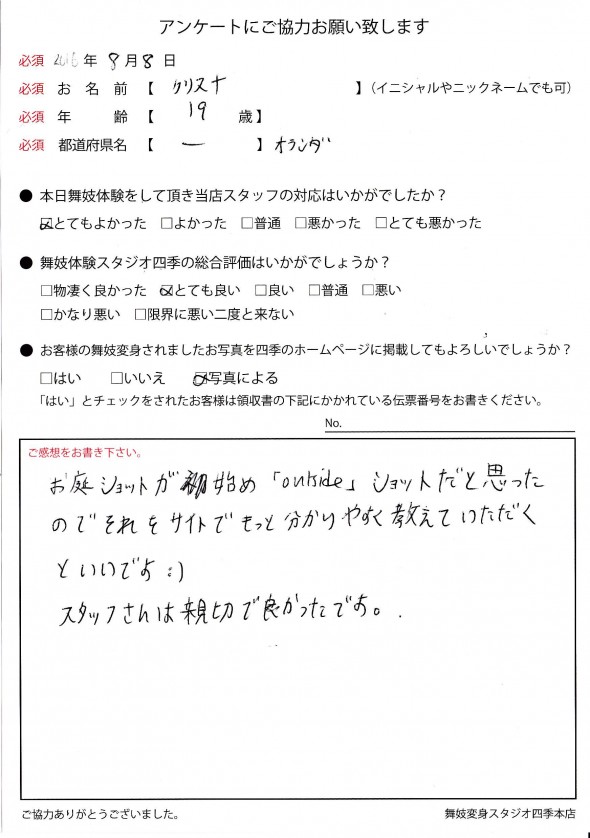 アンケートにご協力お願い致します
必須 2016年 8月 8日
必須 お名前【 クリスナ 】(イニシャルやニックネームでも可)
必須 年齢【 19 歳】
必須 都道府県名【 ー 】オランダ
● 本日舞妓体験をして頂き当店スタッフの対応はいかがでしたか?
☑とてもよかった □よかった □普通 □悪かった □とても悪かった
● 舞妓体験スタジオ四季の総合評価はいかがでしょうか?
□物凄く良かった ☑とても良い □良い □普通 □悪い
□かなり悪い □限界に悪い二度と来ない
● お客様の舞妓変身されましたお写真を四季のホームページに掲載してもよろしいでしょうか?
□はい □いいえ ☑写真による
「はい」とチェックをされたお客様は領収書の下記にかかれている伝票番号をお書きください。
No.
ご感想をお書き下さい。
お庭ショットが 始め「outside」ショットだと思った
のでそれをサイトでもっと分かりやすく教えていただく
といいですよ :)
スタッフさんは親切で良かったです。
ご協力ありがとうございました。
舞妓変身スタジオ四季本店